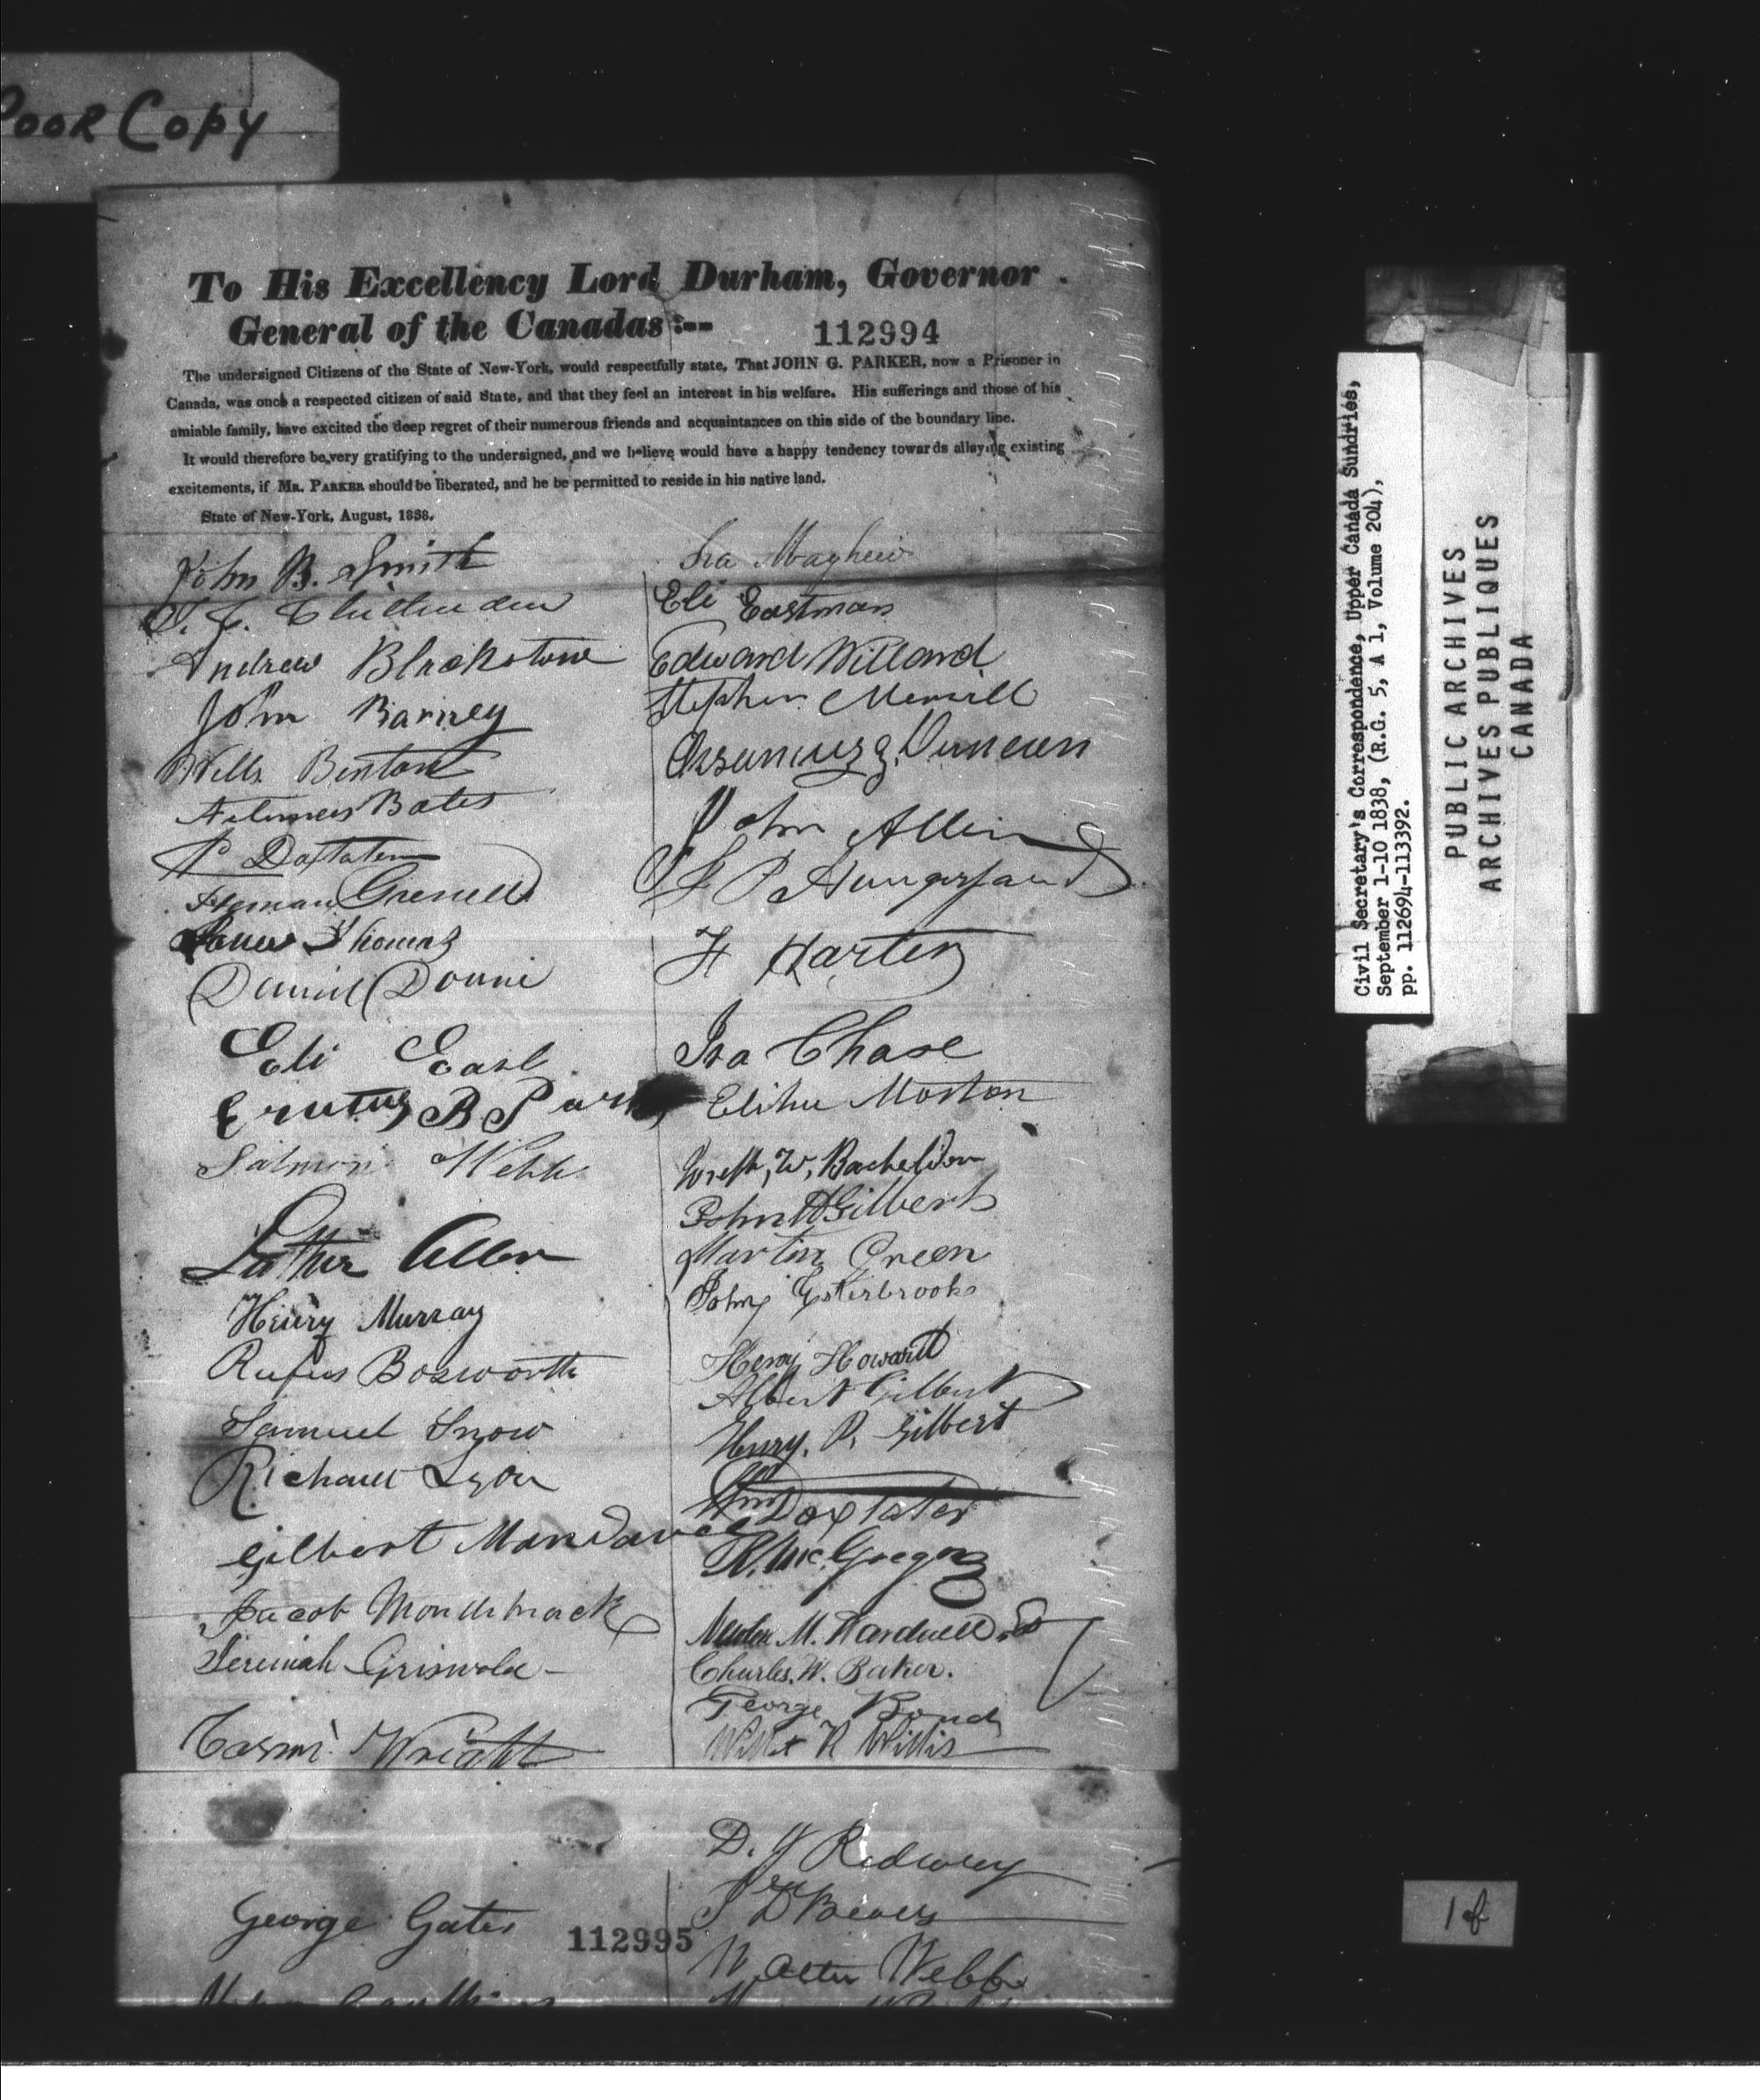 Poor Copy
To His Excellency Lord Durham, Governor
General of the Canadas:--
112994
The undersigned Citizens of the State of New-York, would respectfully state, That JOHN G. PARKER, now a Prisoner in
Canada, was once a respected citizen of said State, and that they feel an interest in his welfare. His sufferings and those of his
amiable family, have excited the deep regret of their numerous friends and acquaintances on this side of the boundary line.
It would therefore be very gratifying to the undersigned, and we believe would have a happy tendency towards allaying existing
excitements, if MR. PARKER should be liberated, and he be permitted to reside in his native land.
State of New-York, August, 1838.
John B. Smith
Andrew Blackstone
John Barney
Wells Benton
Bates
Heman Grenell
James Thomas
Daniel
Eli East
Erastus B
Salmon Webb
Luther Allen
Henry Murray
Rufus Bosworth
Samuel Snow
Richard Lyon
Gilbert
Jacob
Jeremiah Griswold
Wright
George Gates
112995
Ira Mayhew
Eli Eastman
Edward Willard
Stephen Merrill
Duncan
John Allen
S P Hungerford
H Harter
Ira Chase
Elihu Morton
W, Bacheldor
John H Gilbert
Martin Green
John Esterbrooks
Henry Howard
Albert Gilbert
Henry. P. Gilbert
Wm Doxtater
R. McGregor
M. Wardwell
Charles. W. Baker.
George Bond
R Willis
D. Ridway
S D
Walter Webb
Civil Secretary's Correspondence, Upper Canada Sundries,
September 1-10 1838, (R.G. 5, A 1, Volume 204),
pp. 112694-113392.
PUBLIC ARCHIVES
ARCHIVES PUBLIQUES
CANADA